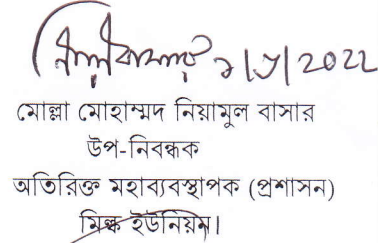 মোল্লা মোহাম্মদ নিয়ামুল বাসার
উপ-নিবন্ধক
অতিরিক্ত মহাব্যবস্থাপক (প্রশাসন)
মিল্ক ইউনিয়ন।